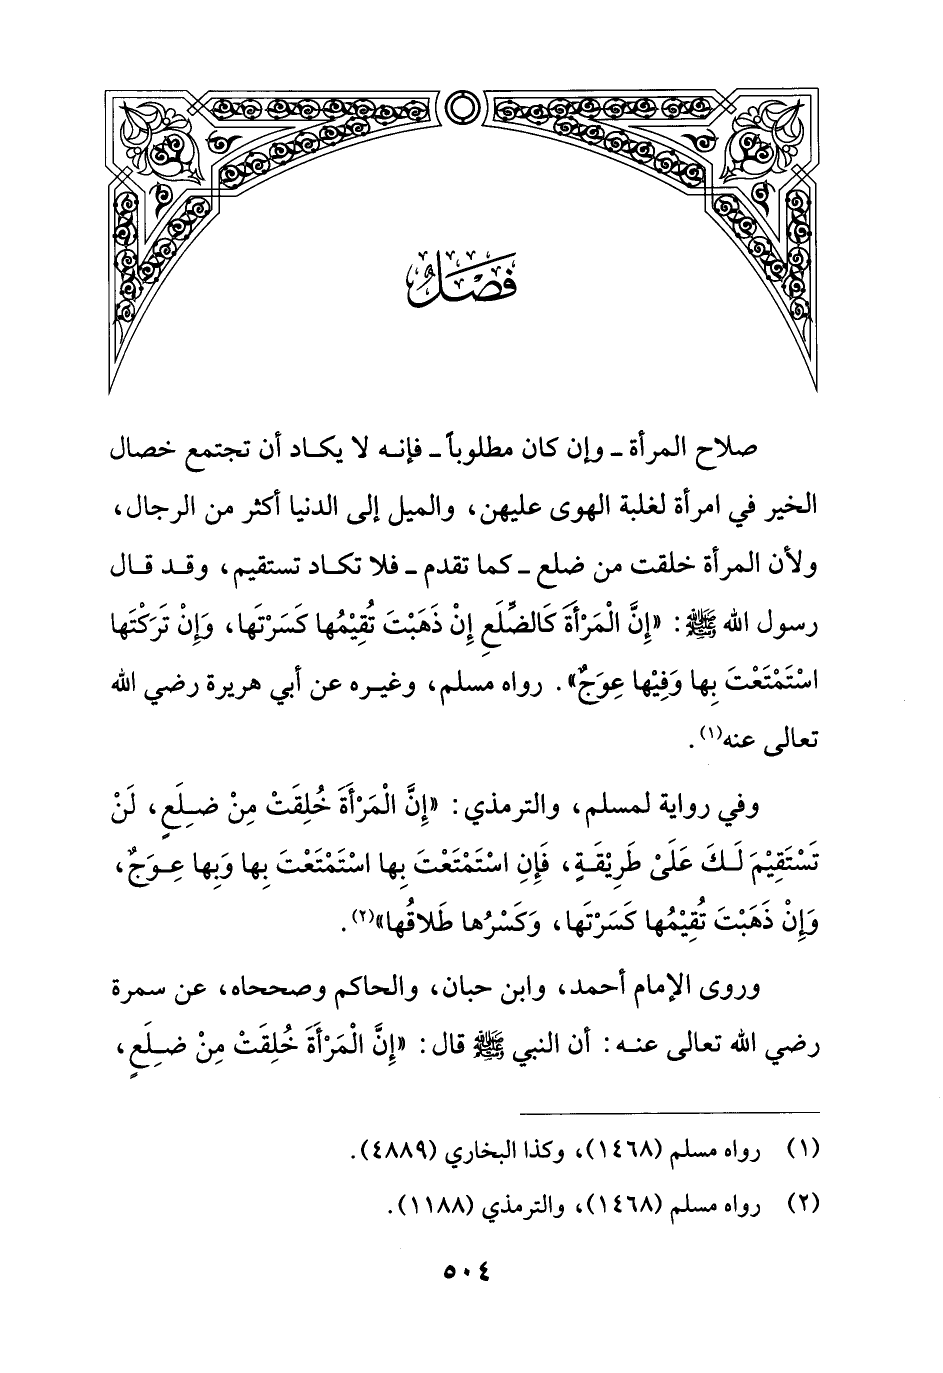 فَصْلٌ
صلاح المرأة ـ وإن كان مطلوباً ـ فإنه لا يكاد أن تجتمع خصال
الخير في امرأة لغلبة الهوى عليهن، والميل إلى الدنيا أكثر من الرجال،
ولأن المرأة خلقت من ضلع ـ كما تقدم ـ فلا تكاد تستقيم، وقد قال
رسول الله ﷺ: «إِنَّ الْمَرْأَةَ كَالضِّلَعِ إِنْ ذَهَبْتَ تُقِيْمُها كَسَرْتَها، وَإِنْ تَرَكْتَها
اسْتَمْتَعْتَ بِها وَفِيْها عِوَجٌ». رواه مسلم، وغيره عن أبي هريرة رضي الله
تعالى عنه(١).
وفي رواية لمسلم، والترمذي: «إِنَّ الْمَرْأَةَ خُلِقَتْ مِنْ ضِلَعٍ، لَنْ
تَسْتَقِيْمَ لَكَ عَلَىْ طَرِيْقَةٍ، فَإِنِ اسْتَمْتَعْتَ بِها اسْتَمْتَعْتَ بِها وَبِها عِوَجٌ،
وَإِنْ ذَهَبْتَ تُقِيْمُها كَسَرْتَها، وَكَسْرُها طَلاقُها»(٢).
وروى الإمام أحمد، وابن حبان، والحاكم وصححاه، عن سمرة
رضي الله تعالى عنه: أن النبي ﷺ قال: «إِنَّ الْمَرْأَةَ خُلِقَتْ مِنْ ضِلَعٍ،
(١) رواه مسلم (١٤٦٨)، وكذا البخاري (٤٨٨٩).
(٢) رواه مسلم (١٤٦٨)، والترمذي (١١٨٨).
٥٠٤